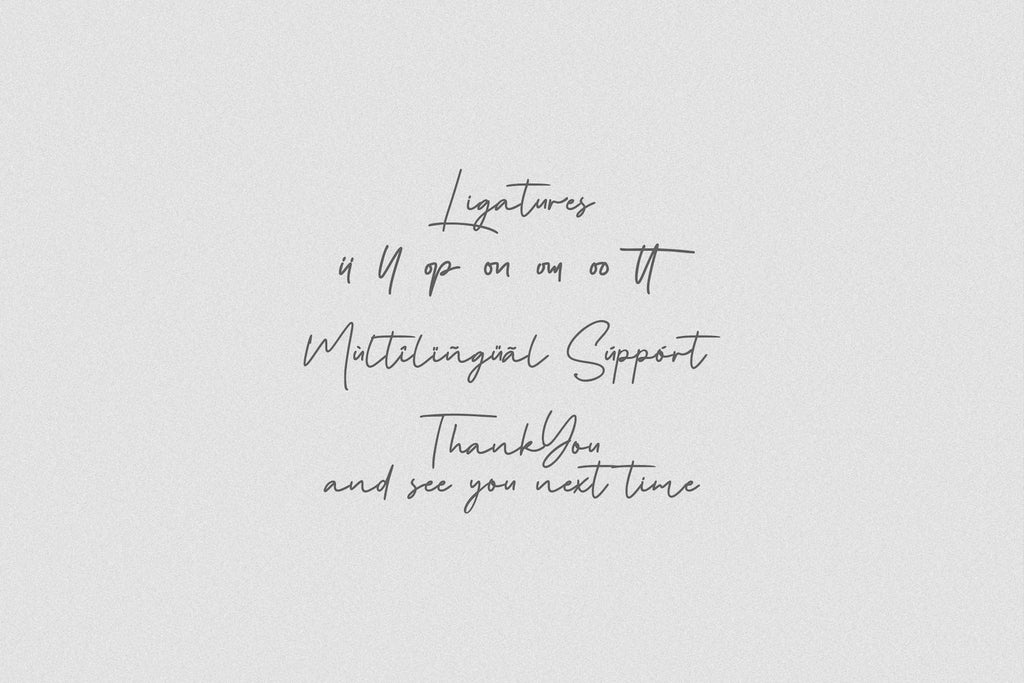 Ligatures
ii ll op on om oo tt
Mùltîlïñgüãl Súppórt
ThankYou
and see you next time